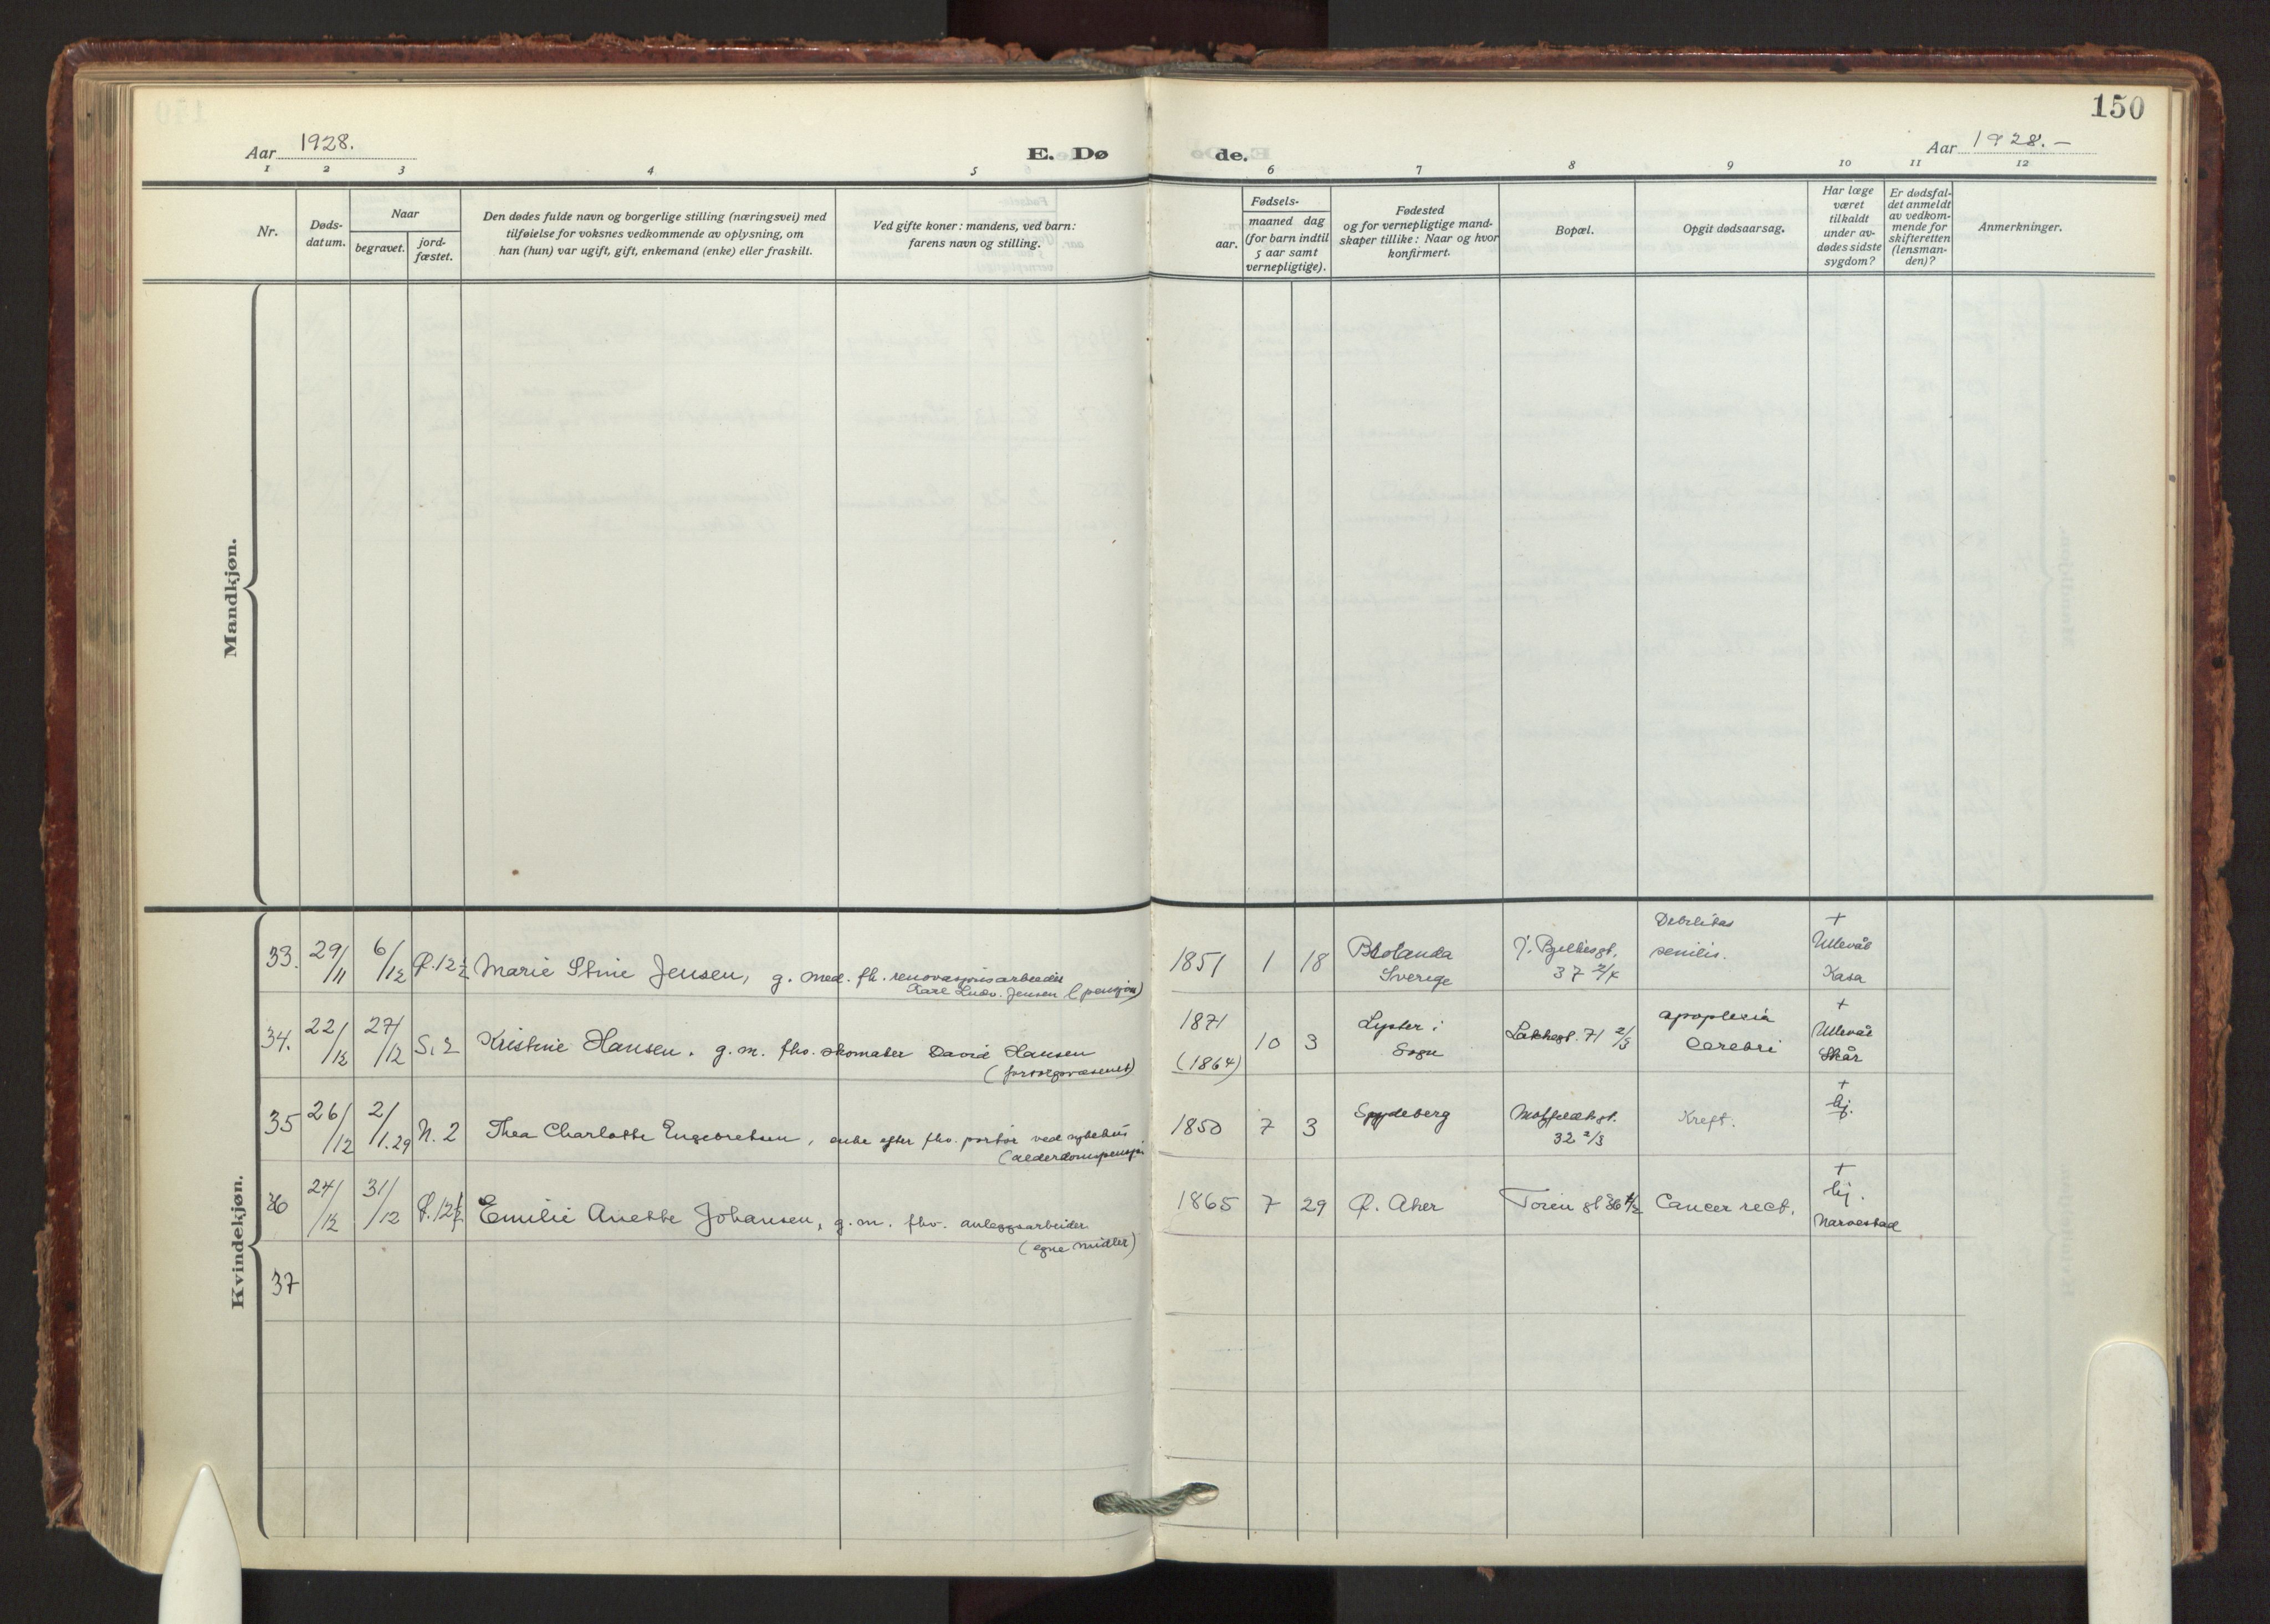 150
Aar 1928.
E. Dø
de.
Aar 1928. –
1 2 3 4 5 6 7 8 9 10 11 12
Nr.
Døds-
datum.
Naar
begravet.
jord-
fæstet.
Den dødes fulde navn og borgerlige stilling (næringsvei) med
tilføielse for voksnes vedkommende av oplysning, om
han (hun) var ugift, gift, enkemand (enke) eller fraskilt.
Ved gifte koner: mandens, ved barn:
farens navn og stilling.
Fødsels-
aar.
maaned dag
(for barn indtil
5 aar samt
vernepligtige).
Fødested
og for vernepligtige mand-
skaper tillike: Naar og hvor
konfirmert.
Bopæl.
Opgit dødsaarsag.
Har læge
været
tilkaldt
under av-
dødes sidste
sygdom?
Er dødsfal-
det anmeldt
av vedkom-
mende for
skifteretten
(lensman-
den)?
Anmerkninger.
Mandkjøn.
Kvindekjøn.
33. 29/11 6/12 12½ Marie Stine Jensen, g. med. fh. renovasjonsarbeider
Karl Ludv. Jensen (pensjon)
1851 1 18
Sverige
37
Debilitas
senilis.
+
Ullevål
Kasa
34. 22/12 27/12 S. 2 Kristine Hansen. g. m. fhv. skomaker David Hansen
(forsorgsvæsenet)
1871
(1864)
10 3
Lyster i
Sogn
Lakkegt. 71 2/3
apoplexia
Cerebri
+
Ullevål
Skår
35 26/12 2/1.29 N. 2 Thea Charlotte Engebretsen, enke efter fhv. portør ved sykehus
(alderdomspensjon
1850 7 3 Spydeberg
32 2/3
Kreft.
+
hj.
36 24/12 31/12 12½ Emilie Anette Johansen, g. m. fhv. anleggsarbeider
(egne midler)
1865 7 29 Ø. Aker
36 Cancer rect.
+
hj.
Narvestad
37